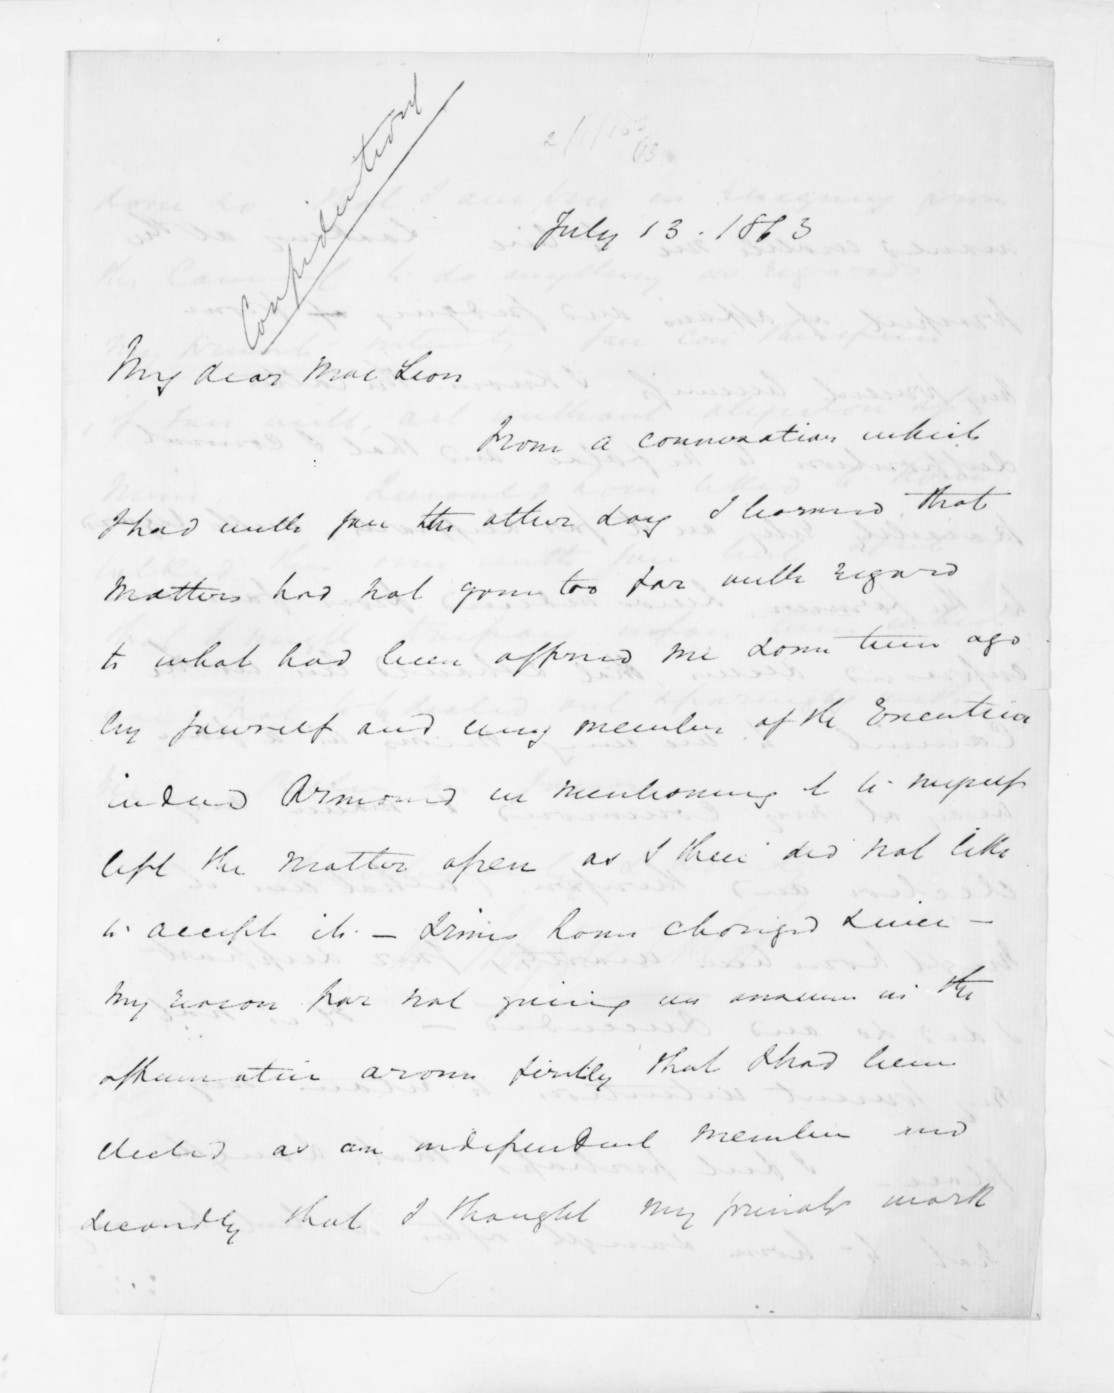 Confidential
July 13. 1863
My dear Mac Lean
From a conversation which
I had with you the other day I learned that
matters had not gone too far with regard
to what had been offered me some time ago
by yourself and every member of the Executive
indeed Ormond in mentioning it to myself
left the matter open as I then did not like
to accept it. — Times have changed since —
My reason for not giving an answer in the
affirmative arose firstly that I had been
elected as an independent member and
secondly that I thought my private work